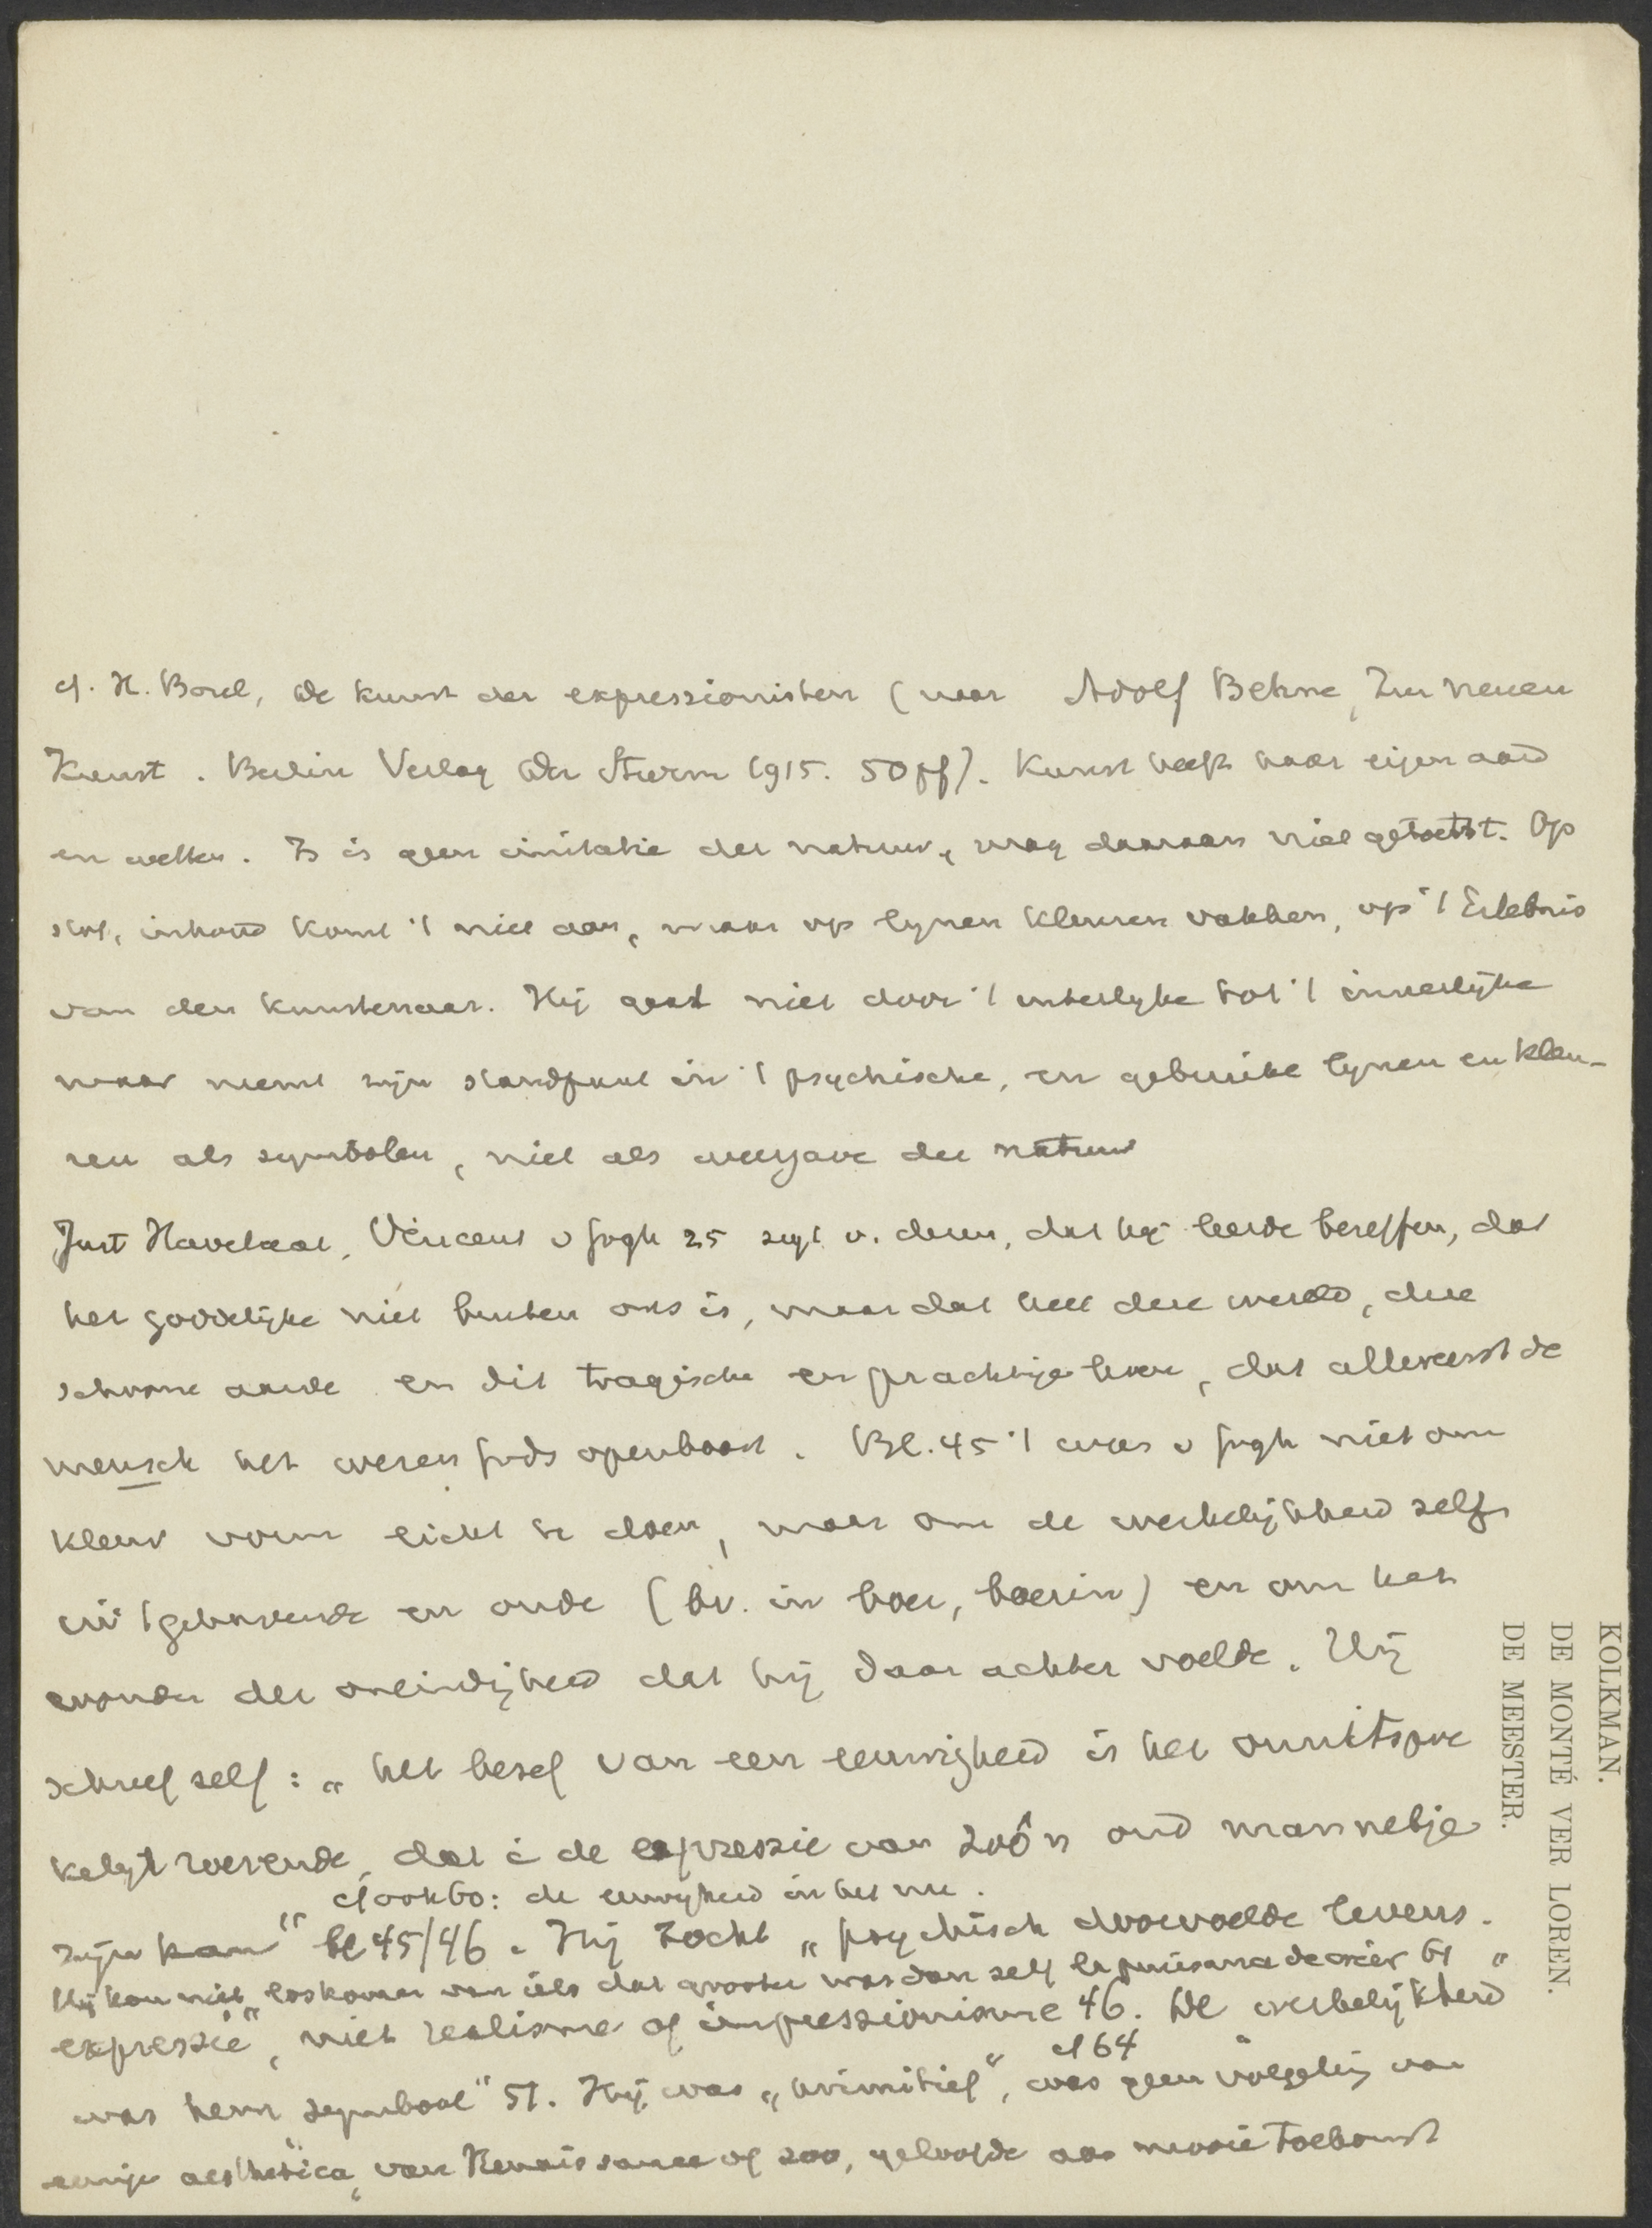 cf. H. Borel, De kunst der expressionisten (naar Adolf Behne, Zur neuen
Kunst. Berlin Verlag Der Sturm 1915. 50 pf). Kunst heeft haar eigen aard
en wetten. Is geen imitatie der natuur, mag daaraan niet getoetst. Op
stof, inhoud komt 't niet aan, maar op lijnen kleuren vakken, op 't Erlebnis
van den kunstenaar. Hij gaat niet door 't uiterlijke tot 't innerlijke
maar neemt zijn standpunt in 't psychische, en gebruikt lijnen en kleu-
ren als symbolen, niet als weergave der natuur
Just Havelaar, Vincent v Gogh 25 zegt v. dezen, dat hij leerde beseffen, dat
het goddelijke niet buiten ons is, maar dat heel deze wereld, deze
schoone aarde en dit tragische en prachtige leven, dat allereerst de
mensch het wezen Gods openbaart. Bl. 45 't was v Gogh niet om
kleur vorm licht te doen, maar om de werkelijkheid zelf
en om het
wonder der oneindigheid dat hij daar achter voelde. Hij
schreef zelf: „het besef van een eeuwigheid is het onuitspre
kelijkt roerende, dat in de expressie van zoo'n oud mannetje
cf ook 60: de eeuwigheid in het nu.
zijn kan" bl 45/46. Hij zocht „psychisch doorvoelde levens.
Hij kon niet loskomen van iets dat grooter was dan zelf 61
expressie", niet realisme of impressionisme 46. De werkelijkheid
cf 64
was hem symbool" 51. Hij was „primitief", was geen volgeling van
eenige aesthetica, van Renaissance of zoo, geloofde aan mooie toekomst
KOLKMAN.
DE MONTÉ VER LOREN.
DE MEESTER.